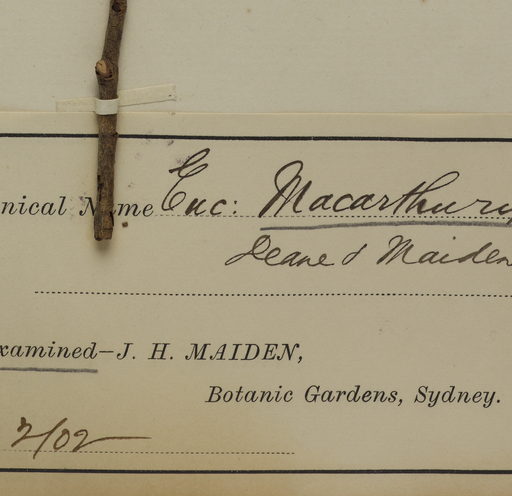 nical Name Euc: Macarthuri
Deane & Maiden
xamined—J. H. MAIDEN,
Botanic Gardens, Sydney.
2/02